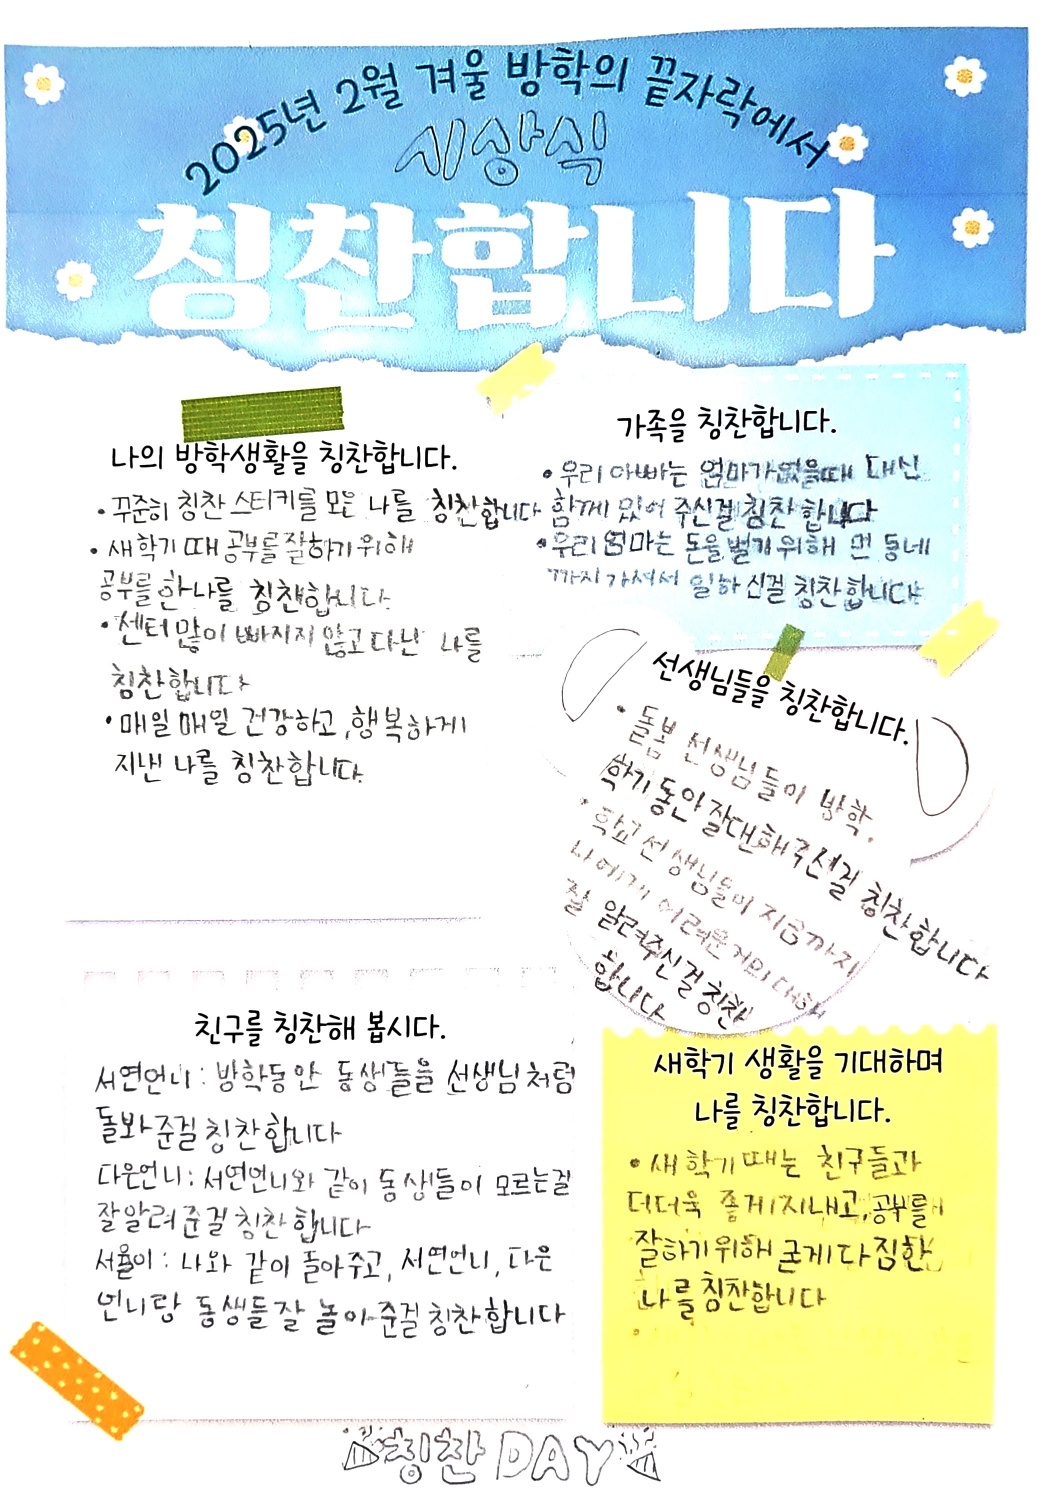 2025년 2월 겨울 방학의 끝자락에서
시상식
칭찬합니다
나의 방학생활을 칭찬합니다.
• 꾸준히 칭찬 스티커를 모은 나를 칭찬합니다
• 새학기 때 공부를 잘하기 위해
공부를 한 나를 칭찬합니다
• 센터 많이 빠지지 않고 다닌 나를
칭찬합니다
• 매일 매일 건강하고, 행복하게
지낸 나를 칭찬합니다.
가족을 칭찬합니다.
• 우리 아빠는 엄마가 없을때 대신
함께 있어 주신걸 칭찬 합니다
• 우리 엄마는 돈을 벌기 위해 먼 동네
까지 가셔서 일하신걸 칭찬합니다
선생님들을 칭찬합니다.
• 돌봄 선생님들이 방학.
학기 동안 잘대해주신걸 칭찬합니다
• 학교 선생님들이 지금까지
나에게 어려운거의 대해
잘 알려주신걸 칭찬
합니다
친구를 칭찬해 봅시다.
서연언니 : 방학동안 동생들을 선생님처럼
돌봐준걸 칭찬합니다
다은언니 : 서연언니와 같이 동생들이 모르는걸
잘 알려 준걸 칭찬 합니다
서율이 : 나와 같이 놀아주고, 서연언니, 다은
언니랑 동생들 잘 놀아준걸 칭찬합니다
새학기 생활을 기대하며
나를 칭찬합니다.
• 새 학기 때는 친구들과
더더욱 좋게 지내고, 공부를
잘하기 위해 굳게 다짐한
나를 칭찬합니다
칭찬 DAY